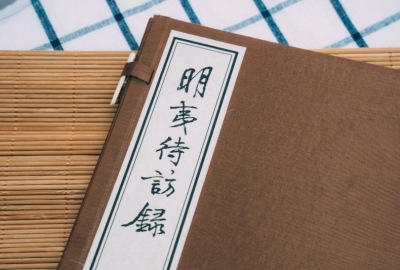 明夷待訪録